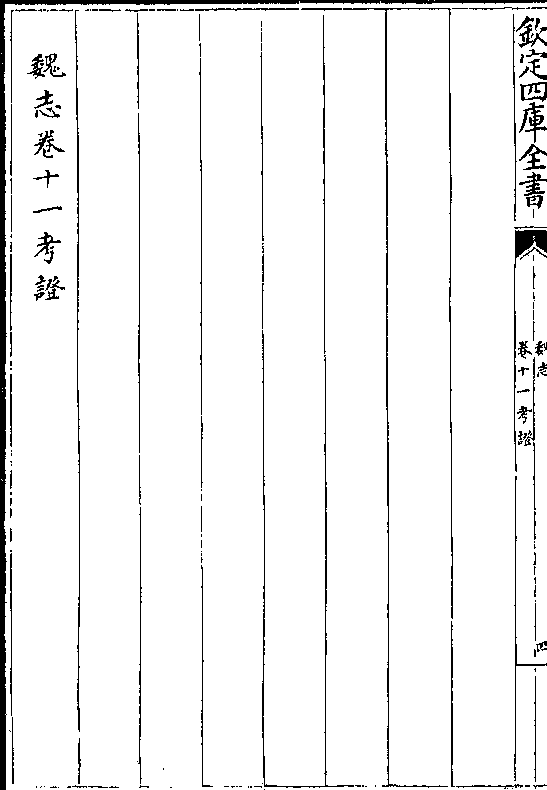 欽定四庫全書
魏志
卷十一考證
四
魏志卷十一考證